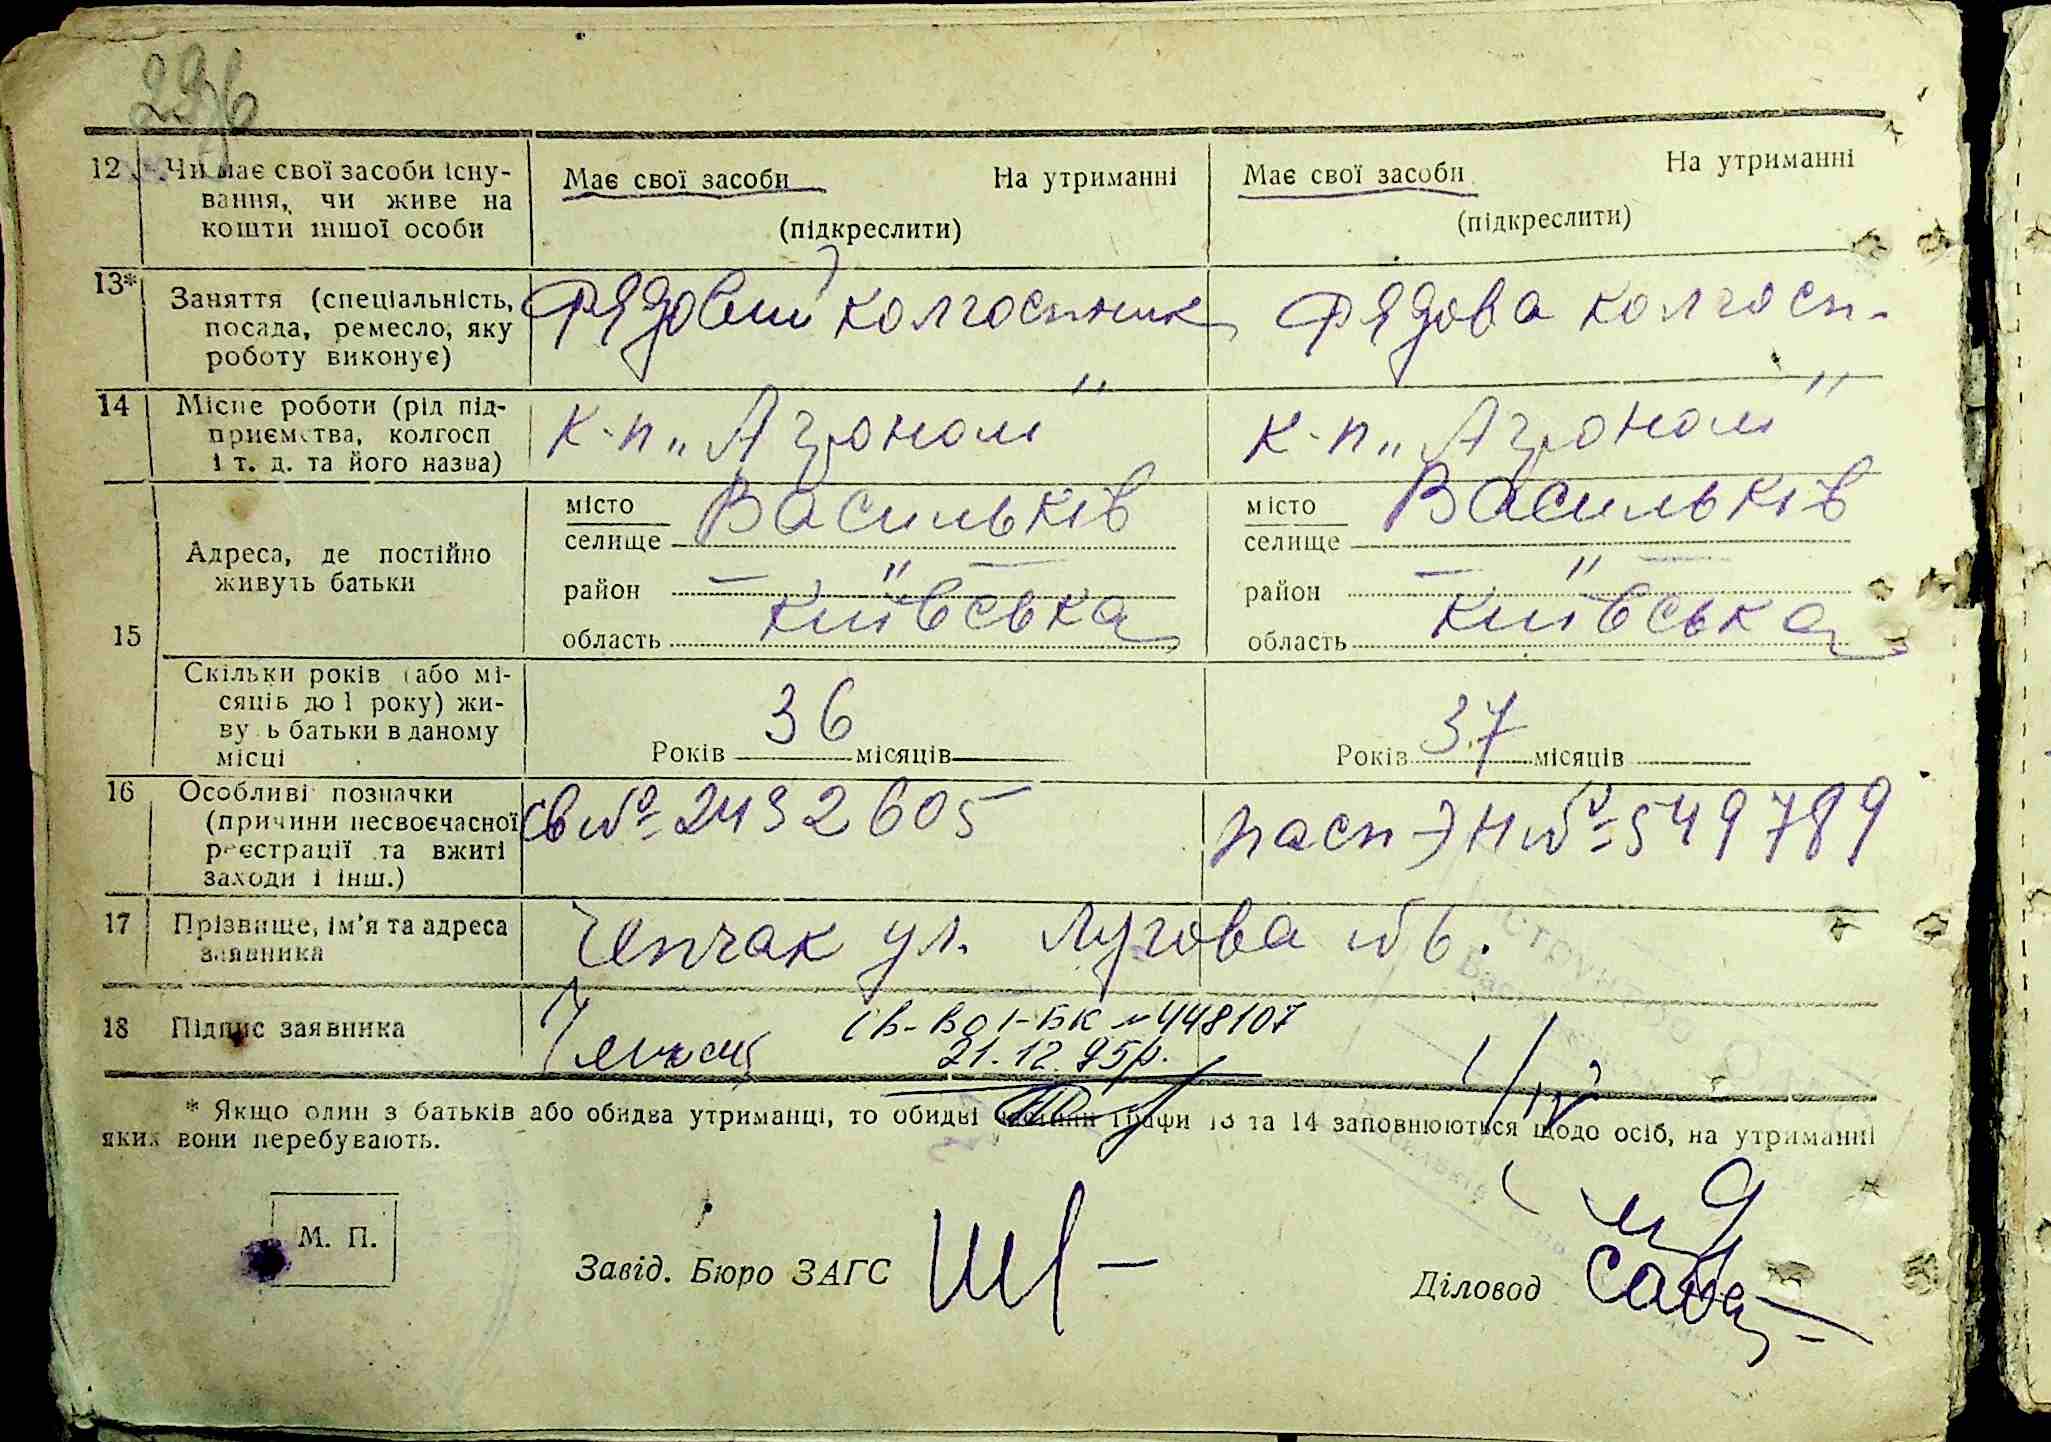 296
12 Чи має свої засоби існу- Має свої засоби На утриманні Має свої засоби На утриманні
вання, чи живе на
кошти іншої особи (підкреслити) (підкреслити)
13* Заняття (спеціальність, Рядовий колгоспник Рядова колгосп-
посада, ремесло, яку
роботу виконує)
14 Місце роботи (рід під- к-п „Агроном" к-п „Агроном"
приємства, колгосп
і т. д. та його назва)
15 Адреса, де постійно
живуть батьки
місто Васильків місто Васильків
селище селище
район — " — район — " —
область Київська область Київська
Скільки років (або мі-
сяців до 1 року) жи-
вуть батьки в даному
місці
Років 36 місяців Років 37 місяців
16 Особливі позначки
(причини несвоєчасної св № 2432605 пасп ЭН № 549789
реєстрації та вжиті
заходи і інш.)
17 Прізвище, ім'я та адреса Чепчак ул. Лугова № 6.
заявника
18 Підпис заявника
св-во І-БК № 448107
21.12.95р.
* Якщо один з батьків або обидва утриманці, то обидві частини графи 13 та 14 заповнюються щодо осіб, на утриманні
яких вони перебувають.
М. П.
Завід. Бюро ЗАГС
Діловод